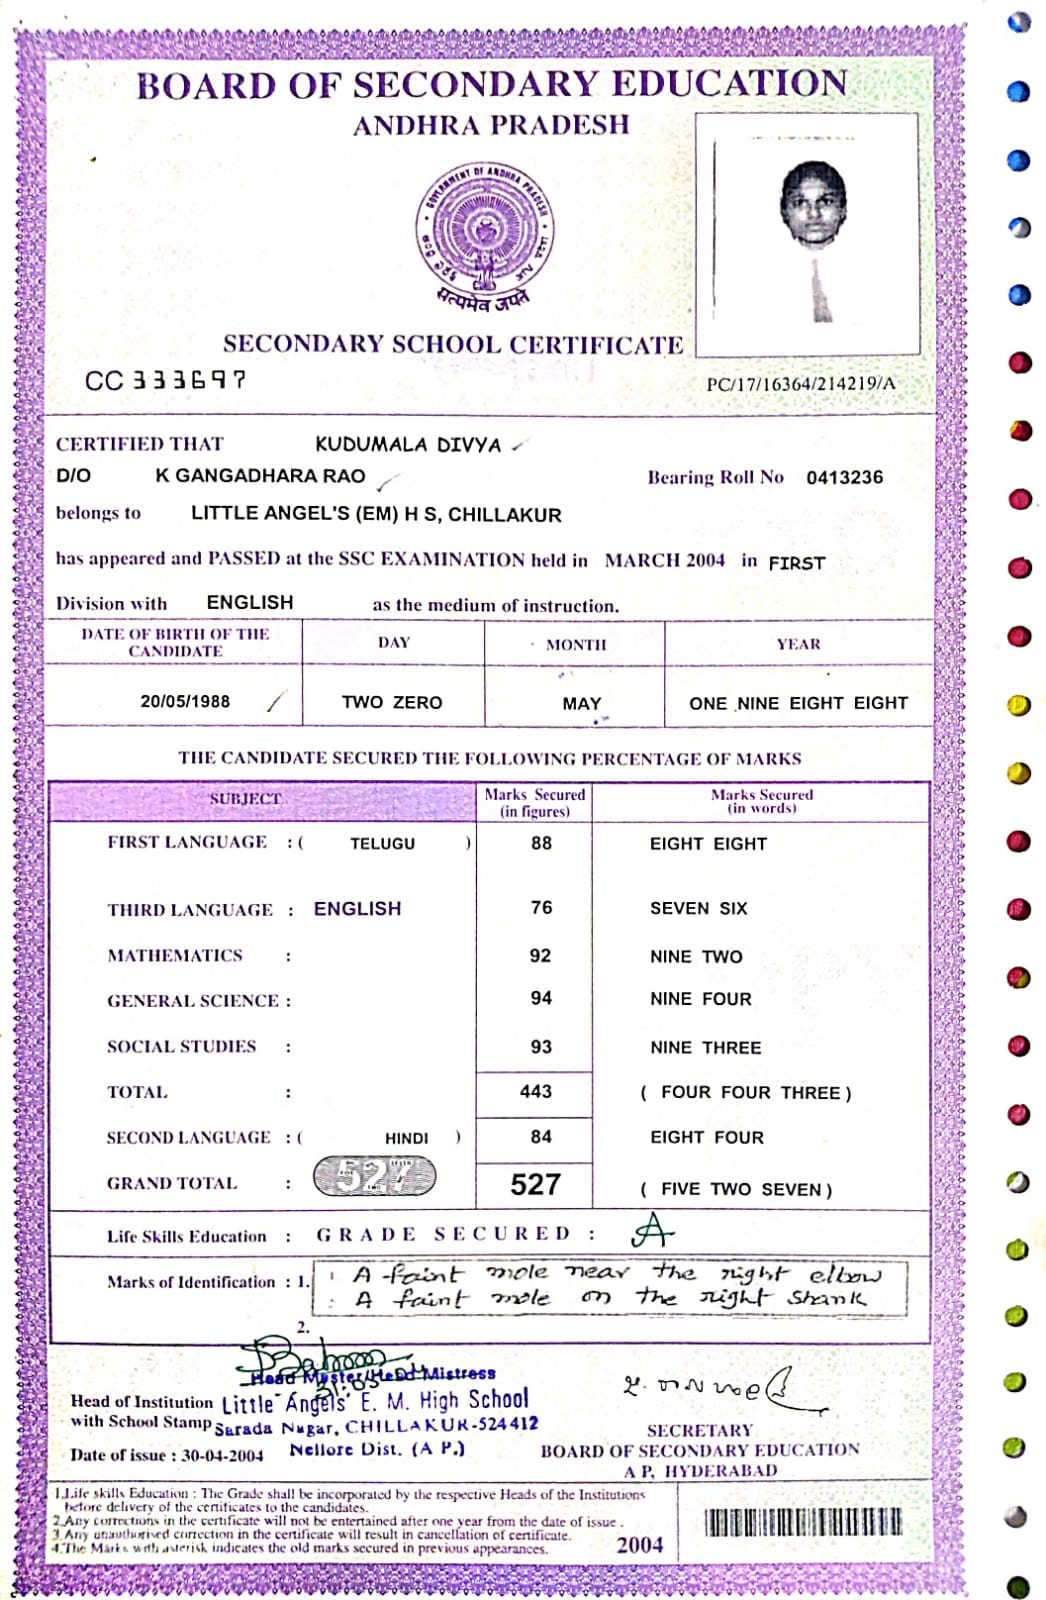 BOARD OF SECONDARY EDUCATION
ANDHRA PRADESH
GOVERNMENT OF ANDHRA PRADESH
सत्यमेव जयते
SECONDARY SCHOOL CERTIFICATE
CC 333697
PC/17/16364/214219/A
CERTIFIED THAT KUDUMALA DIVYA
D/O K GANGADHARA RAO Bearing Roll No 0413236
belongs to LITTLE ANGEL'S (EM) H S, CHILLAKUR
has appeared and PASSED at the SSC EXAMINATION held in MARCH 2004 in FIRST
Division with ENGLISH as the medium of instruction.
DATE OF BIRTH OF THE CANDIDATE DAY MONTH YEAR
20/05/1988 TWO ZERO MAY ONE NINE EIGHT EIGHT
THE CANDIDATE SECURED THE FOLLOWING PERCENTAGE OF MARKS
SUBJECT Marks Secured (in figures) Marks Secured (in words)
FIRST LANGUAGE : ( TELUGU ) 88 EIGHT EIGHT
THIRD LANGUAGE : ENGLISH 76 SEVEN SIX
MATHEMATICS : 92 NINE TWO
GENERAL SCIENCE : 94 NINE FOUR
SOCIAL STUDIES : 93 NINE THREE
TOTAL : 443 ( FOUR FOUR THREE )
SECOND LANGUAGE : ( HINDI ) 84 EIGHT FOUR
GRAND TOTAL : 527 527 ( FIVE TWO SEVEN )
Life Skills Education : GRADE SECURED : A
Marks of Identification : 1. A faint mole near the right elbow
A faint mole on the right shank
2.
Head Master/Head Mistress
Head of Institution Little Angels' E. M. High School
with School Stamp Sarada Nagar, CHILLAKUR-524412
Date of issue : 30-04-2004 Nellore Dist. (A P.)
SECRETARY
BOARD OF SECONDARY EDUCATION
A P, HYDERABAD
1.Life skills Education : The Grade shall be incorporated by the respective Heads of the Institutions
before delivery of the certificates to the candidates.
2.Any corrections in the certificate will not be entertained after one year from the date of issue .
3.Any unauthorised correction in the certificate will result in cancellation of certificate.
4.The Marks with asterisk indicates the old marks secured in previous appearances.
2004